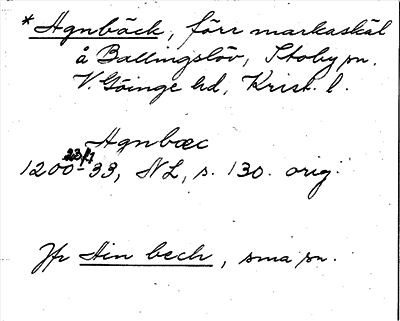 * Agnbäck, förr markaskäl
å Ballingslöv, Stoby sn.
V. Göinge hd, Krist. l.
Agnbæc
1200-33, NL, s. 130. orig.
Jfr Hin bech, sma sn.